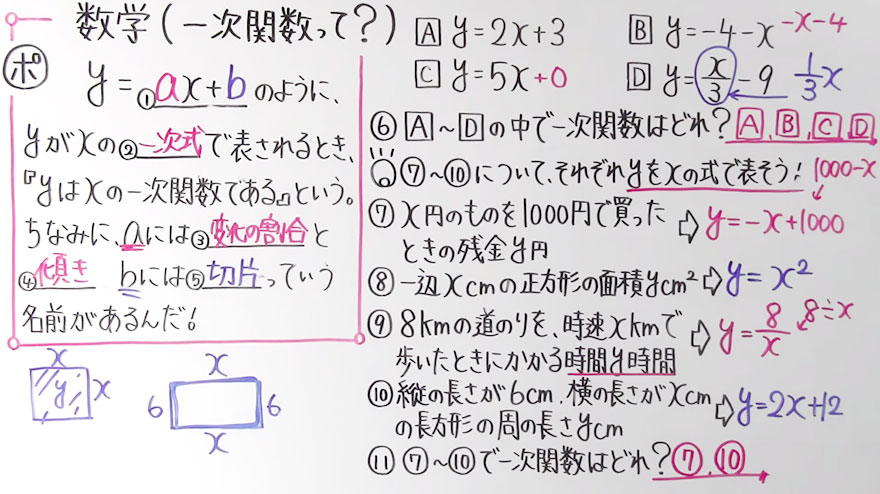 数学(一次関数って?)
ポ
y=①ax+bのように、
yがxの②一次式で表されるとき、
『yはxの一次関数である』という。
ちなみに、aには③変化の割合と
④傾き bには⑤切片っていう
名前があるんだ!
x
y
x
x
6
6
x
A y=2x+3
B y=-4-x -x-4
C y=5x+0
D y=x/3-9 1/3x
⑥A~Dの中で一次関数はどれ?A,B,C,D
⑦~⑩について、それぞれyをxの式で表そう!
1000-x
⑦x円のものを1000円で買った
ときの残金y円
⇨y=-x+1000
⑧一辺xcmの正方形の面積ycm²⇨y=x²
⑨8kmの道のりを、時速xkmで
歩いたときにかかる時間y時間
⇨y=8/x 8÷x
⑩縦の長さが6cm、横の長さがxcm
の長方形の周の長さycm
⇨y=2x+12
⑪⑦~⑩で一次関数はどれ?⑦,⑩